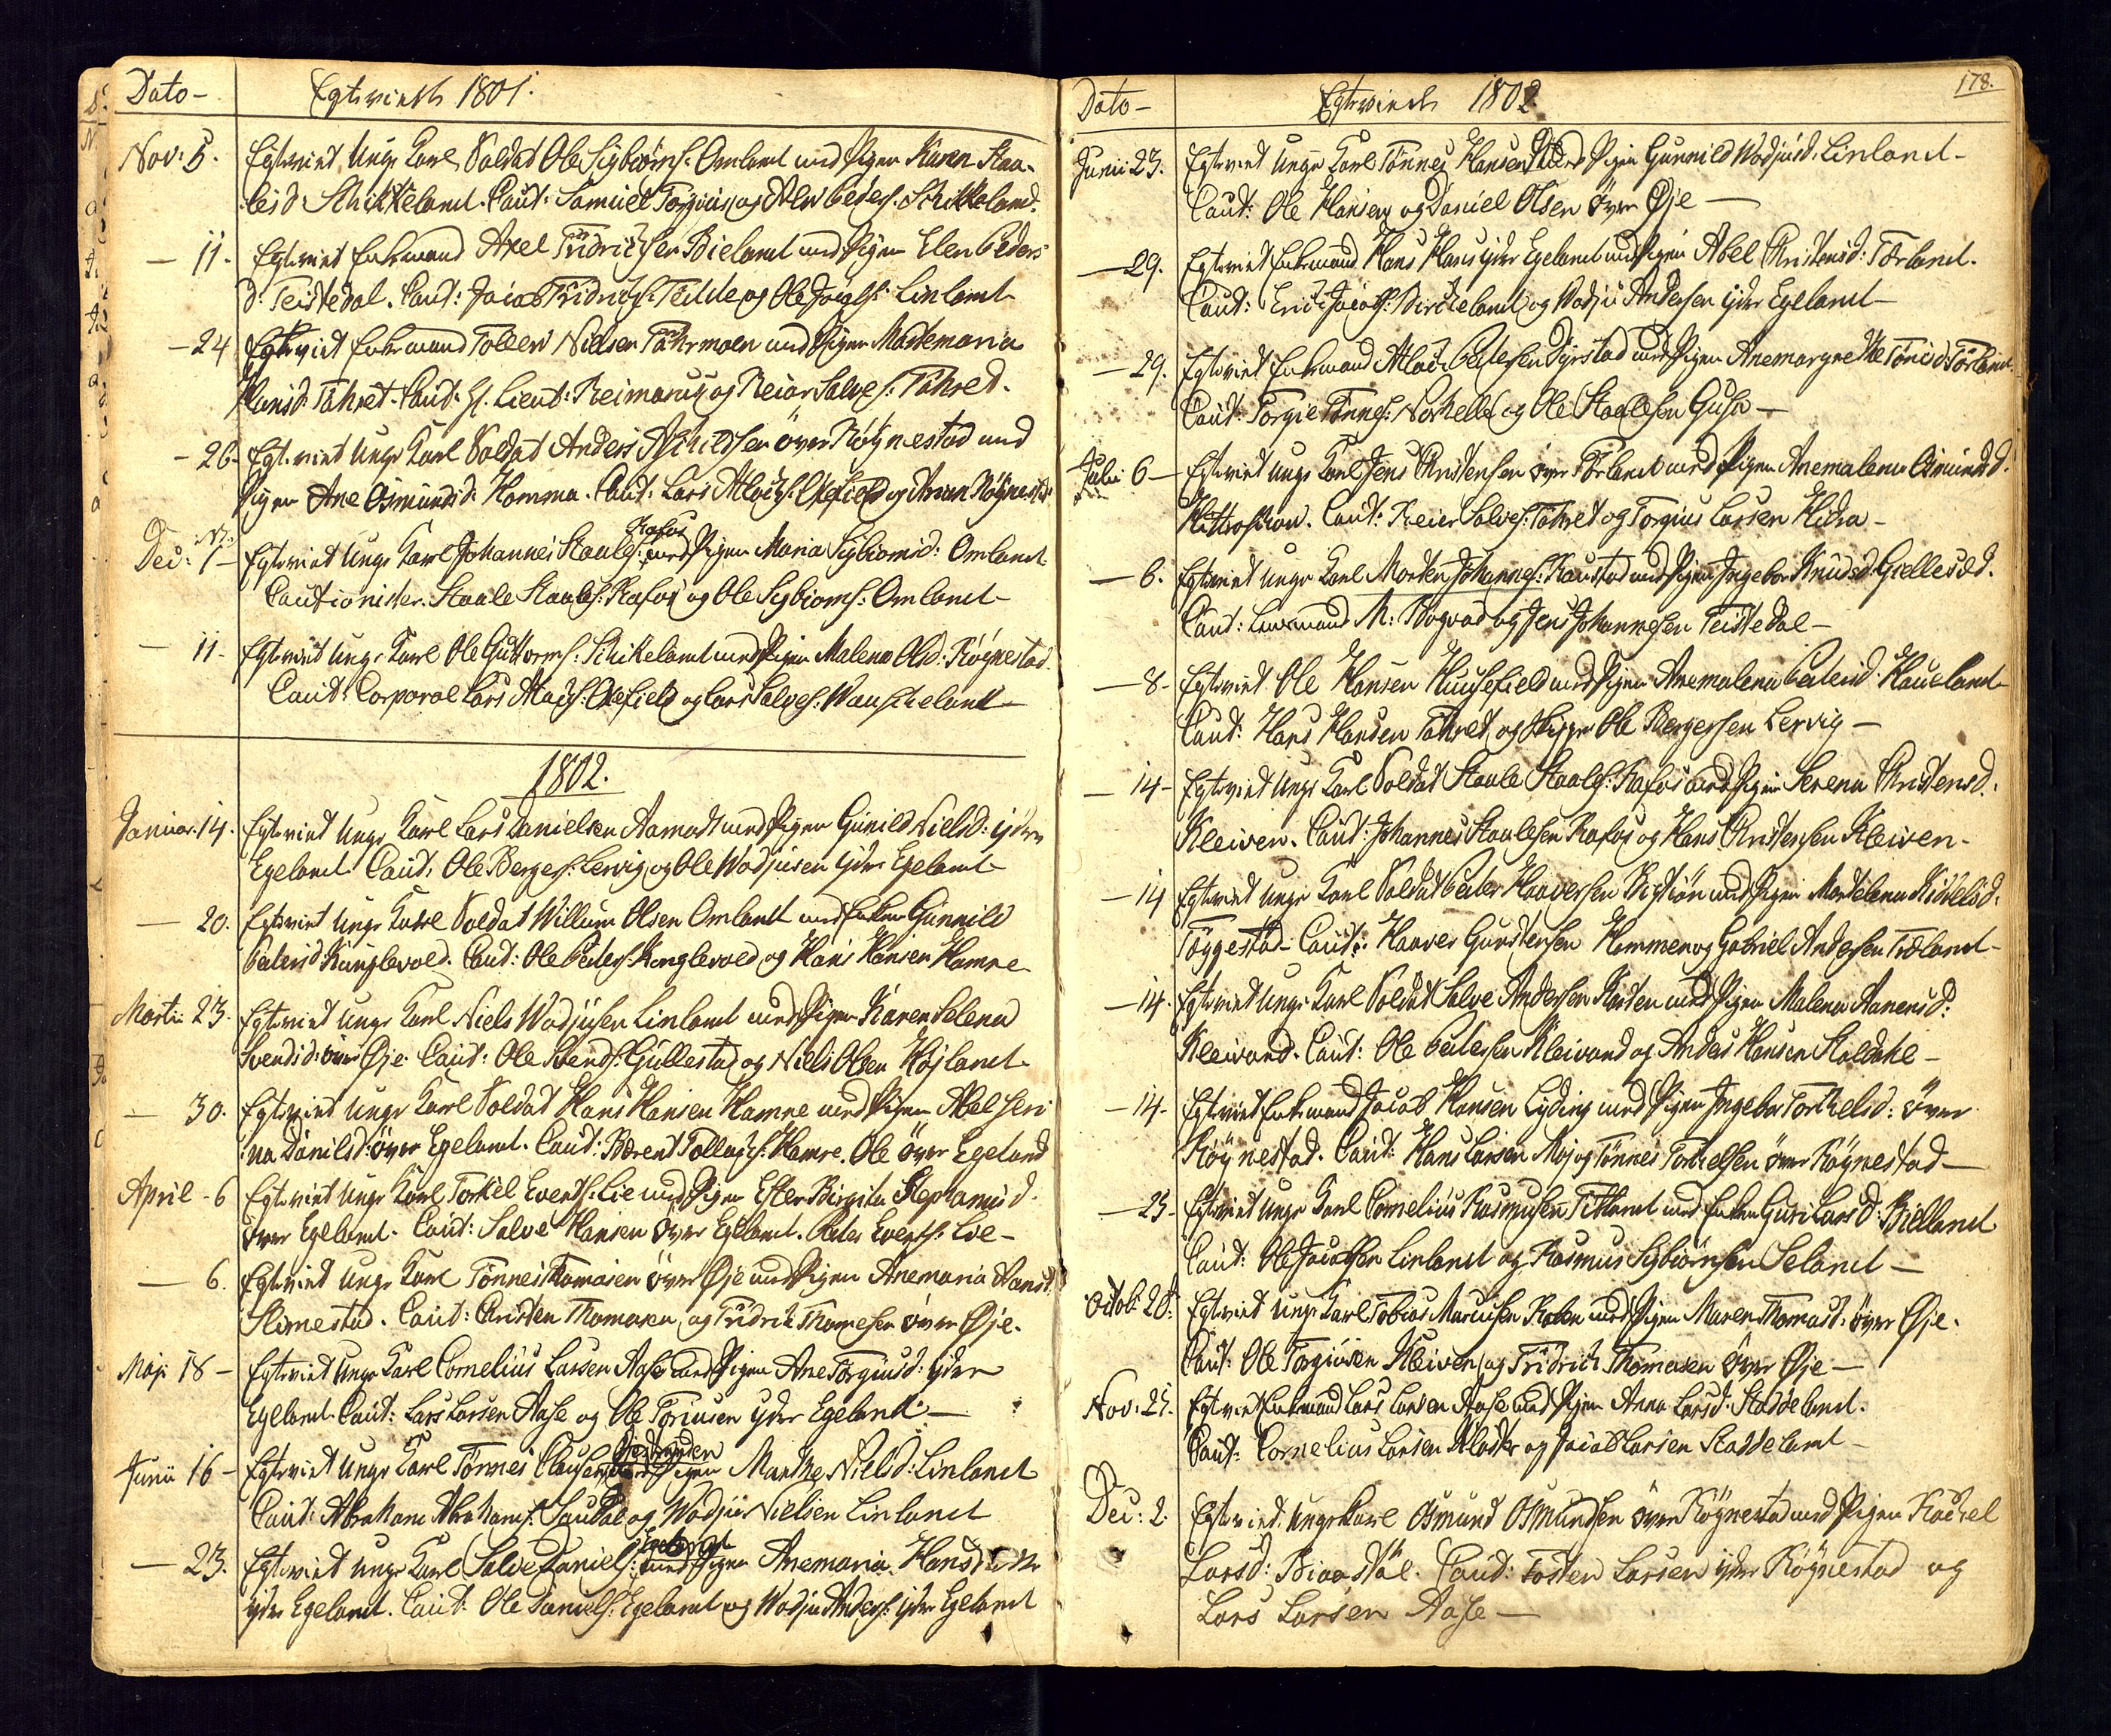 Dato –
Egteviede 1801.
Nov: 5.
Egteviet Unge Karl Soldat Ole Sigbiørns. Omland med Pigen Karen Staa-
lesd: Schikkeland. Caut: Samuel Torgius. og Peders. Schikkeland.
– 11.
Egteviet Enkemand Axel Fridrichsen Bieland med Pigen Elen Peders
d: Teistedal. Caut: Jacob Fridrichs. og Ole Jacobs: Linland
– 24
Egteviet Enkemand Tollew Nielsen med Pigen Martemaria
Hansd: Tähret. Caut: Lieut: Reimarus og Reiar Salves. Tähred.
– 26.
Egteviet Unge Karl Soldat Anders over Röÿnestad med
Pigen Ane Osmundsd: Homma. Caut: Lars Atlachs. Oxefield og Röÿnestad
Dec: 1 –
Rafos
Egteviet Unge Karl Johannes Staales: med Pigen Maria Sigbiørnsd: Omland
Cautionister. Staale Staales: Rafos og Ole Sigbiørns. Omland –
– 11 –
Egteviet Unge Karl Ole Guttorms: Schikeland med Pigen Malena Olsd: Röÿnestad.
Caut: Corporal Lars Atlachs: Oxefield og Lars Salves: –
1802.
Januar. 14.
Egteviet Unge Karl Lars Danielsen Aamodt med Pigen Gunild Nielsd: ÿdre
Egeland. Caut: Ole Berges. Lervig og Ole Wodjusen ÿdre Egeland –
– 20.
Egteviet Unge Karl Soldat Willum Olsen Omland med Enken Gunnild
Pedersd: Kunglevold. Caut: Ole Peders. Konglevold og Hans Hansen Hamre
Martii 23.
Egteviet Unge Karl Niels Wodjusen Linland med Pigen Karen Selena
Svendsd: over Øje. Caut: Ole Svends. Gullestad og Niels Olsen Høÿland
– 30.
Egteviet Unge Karl Soldat Hans Hansen Hamre med Pigen Abel Seri-
na Danilsd: över Egeland. Caut: Berent Tollachs. Hamre. Ole över Egeland
April – 6
Egteviet Unge Karl Torkil Everts: Lie med Pigen Ester Birgita Stephanusd
over Egeland. Caut: Salve Hansen över Egeland. Peter Everts. Lie –
– 6.
Egteviet Unge Karl Tönnes Thomasen över Øje med Pigen Anemaria Hansd
Slimestad. Caut: Christen Thomasen og Fridrich Thomesen över Øje.
Maji 18 –
Egteviet Unge Karl Cornelius Larsen Aase med Pigen Ane Torgiusd: ÿdre
Egeland. Caut: Lars Larsen Aase og Ole Toriusen ÿdre Egeland. –
Junii 16 –
Egteviet Unge Karl Tönnes Clausen med Pigen Marthe Nielsd: Linland
Caut: Abraham Abrahams. og Wodjus Nielsen Linland
– 23.
Egeland
Egteviet Unge Karl Salve Daniels: med Pigen Anemaria Hansd
ÿdre Egeland. Caut: Ole Daniels. Egeland og Wodju Anders. ÿdre Egeland
178.
Dato –
Egteviede 1802
Junii 23.
Egteviet Unge Karl Tönnes Hansen med Pigen Gunnild Wodjusd: Linland –
Caut: Ole Hansen og Daniel Olsen över Øje –
– 29.
Egteviet Enkemand Hans Hans. ÿdre Egeland med Pigen Abel Christensd: Törland.
Caut: Erich Jacobs: Birkeland og Wodju Andersen ÿdre Egeland –
– 29.
Egteviet Enkemand Atlach Pedersen Dyrstad med Pigen Anemargrethe Tönisd: Törland
Caut: Torgie Tönnes: og Ole Staalesen Guse –
Julii 6 –
Egteviet Unge Karl Jens Christensen över Törland med Pigen Anemalena Osmundsd.
Caut: Reier Salves: Tähret og Torgius Larsen Hidra –
– 6.
Egteviet Unge Karl Morten Johannes: Raustad med Pigen Ingebor Knudsd: Gullesæd.
Caut: Lensmand M: Rögvad og Jens Johannesen Teistedal –
– 8 –
Egteviet Ole Hansen Hunsefield med Pigen Anemalena Pedersd: Haueland –
Caut: Hans Hansen Tähret og Skipper Ole Bergersen Lervig –
– 14 –
Egteviet Unge Karl Soldat Staale Staales: Rafos med Pigen Serena Christensd:
Kleiven. Caut: Johannes Staalesen Rafos og Hans Christensen Kleiven –
– 14
Egteviet Unge Karl Soldat Peder Haaversen med Pigen Martelena
Töggestad – Caut: Haaver Gundersen Hammen og Gabriel Andersen Træland –
– 14.
Egteviet Unge Karl Soldat Salve Andersen med Pigen Malena Aanensd:
Kleivand. Caut: Ole Pedersen Kleivand og Anders Hansen Staldahl –
– 14 –
Egteviet Enkemand Jacob Hansen Lyding med Pigen Ingebor Torkelsd: över
Röÿnestad. Caut: Hans Larsen Moj og Tönnes Torkelsen över Röÿnestad –
– 25 –
Egteviet Unge Karl Cornelius Rasmusen Titland med Enken Guri Larsd: Bielland
Caut: Ole Jacobsen Linland og Rasmus Sigbiørnsen Seland –
Octob: 28.
Egteviet Unge Karl Tobias Marcusen med Pigen Maren Thomasd: över Øje.
Caut: Ole Torgiusen Kleiven og Fridrich Thomasen över Øje –
Nov: 25.
Egteviet Enkemand Lars Larsen Aase med Pigen Anna Larsd: Staddeland.
Caut: Cornelius Larsen og Jacob Larsen Staddeland –
Dec: 2.
Egteviet Unge Karl Osmund Osmundsen över Röÿnestad med Pigen Rachel
Larsd: Biaastäl. Caut: Tosten Larsen ÿdre Röÿnestad og
Lars Larsen Aase –